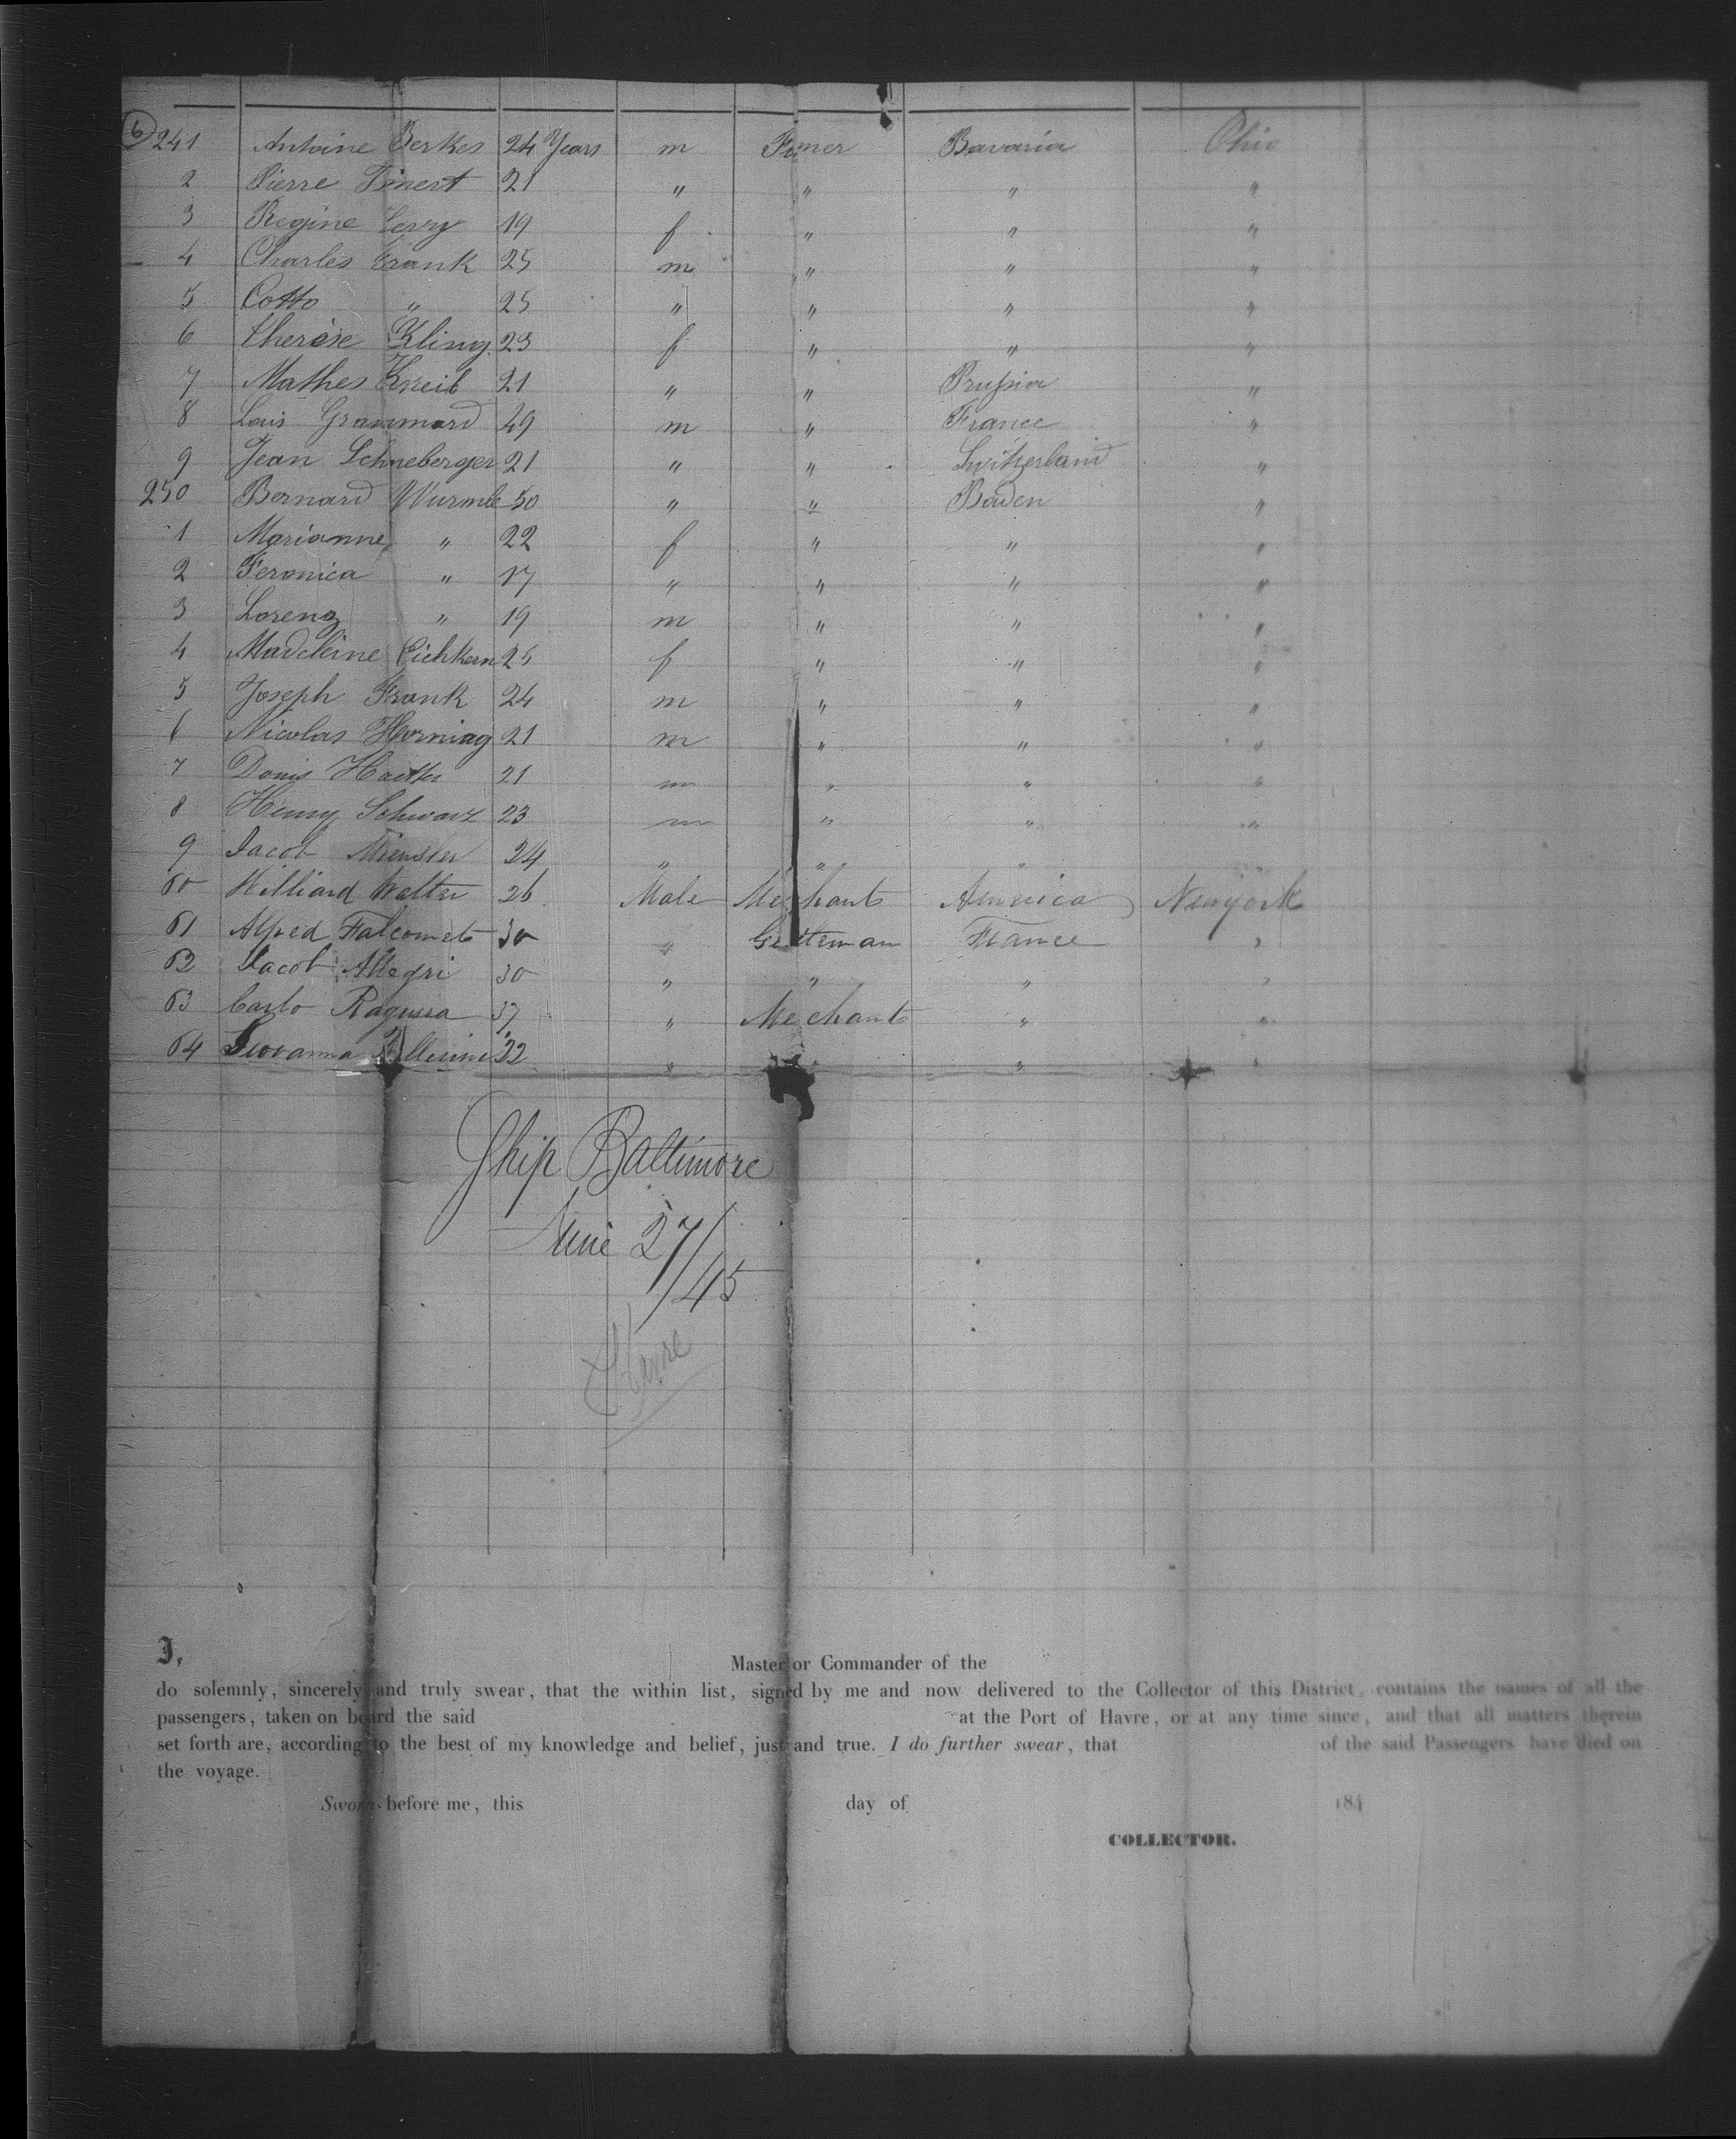 6
241 Antoine Berkes 24 Years m Famer Bavaria Ohio
2 Pierre 21 " " " "
3 Regine Levy 19 f " " "
4 Charles Frank 25 m " " "
5 Cotto " 25 " " " "
6 therèse Kling 23 f " " "
7 Mathes Kneib 21 " " Prussia "
8 Louis Grammard 49 m " France "
9 Jean Schneberger 21 " " Switzerland "
250 Bernard Wurmle 50 " " Baden "
1 Marianne " 22 f " " "
2 Feronica " 17 " " " "
3 Lorenz " 19 m " " "
4 Madeleine Eichkern 25 f " " "
5 Joseph Frank 24 m " " "
6 Nicolas 21 m " " "
7 21 m " " "
8 Henry Schwarz 23 m " " "
9 Jacob 24 " " "
60 Hilliard Walter 26 Male Merchant America Newyork
61 Alfred 30 " Gentleman France "
62 Jacob Allegri 30 " " " "
63 Carlo Ragussa 37 " Mechant " "
64 Giovanna 32 " " " "
Ship Baltimore
June 27/45
Havre
I, Master or Commander of the
do solemnly, sincerely and truly swear, that the within list, signed by me and now delivered to the Collector of this District, contains the names of all the
passengers, taken on board the said at the Port of Havre, or at any time since, and that all matters therein
set forth are, according to the best of my knowledge and belief, just and true. I do further swear, that of the said Passengers have died on
the voyage.
Sworn before me, this day of 184
COLLECTOR.